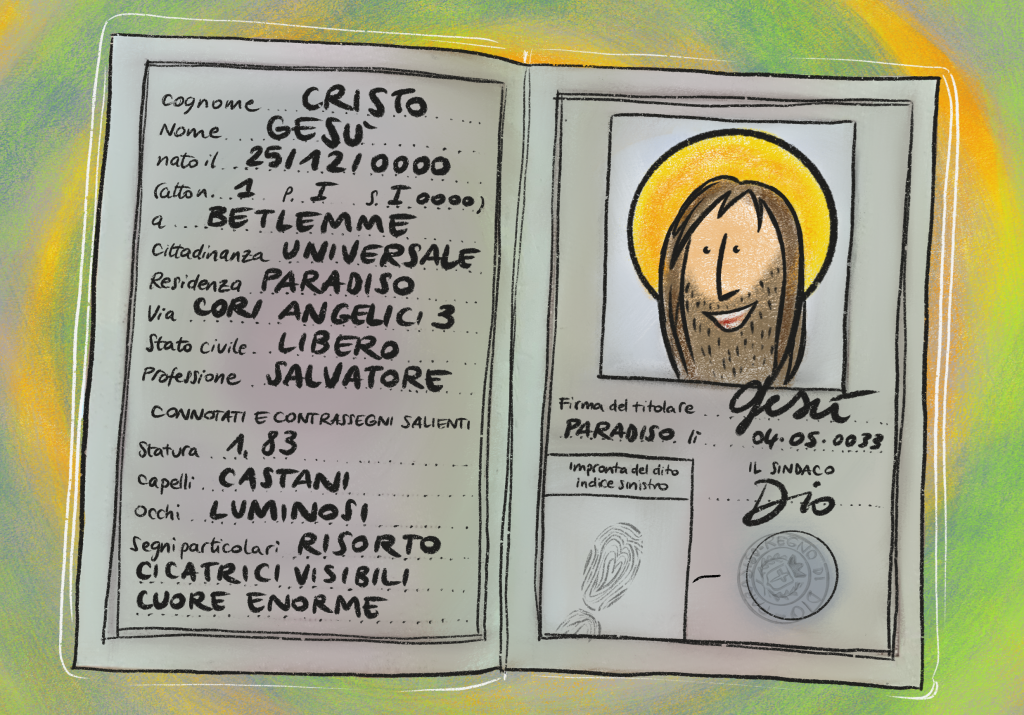 Cognome CRISTO
Nome GESÙ
nato il 25/12/0000
(atto n. 1 P. I S. I 0000)
a BETLEMME
Cittadinanza UNIVERSALE
Residenza PARADISO
Via CORI ANGELICI 3
Stato civile LIBERO
Professione SALVATORE
CONNOTATI E CONTRASSEGNI SALIENTI
Statura 1,83
Capelli CASTANI
Occhi LUMINOSI
Segni particolari RISORTO
CICATRICI VISIBILI
CUORE ENORME
Firma del titolare Gesù
PARADISO li 04.05.0033
Impronta del dito
indice sinistro
IL SINDACO
Dio
REGNO DI DIO